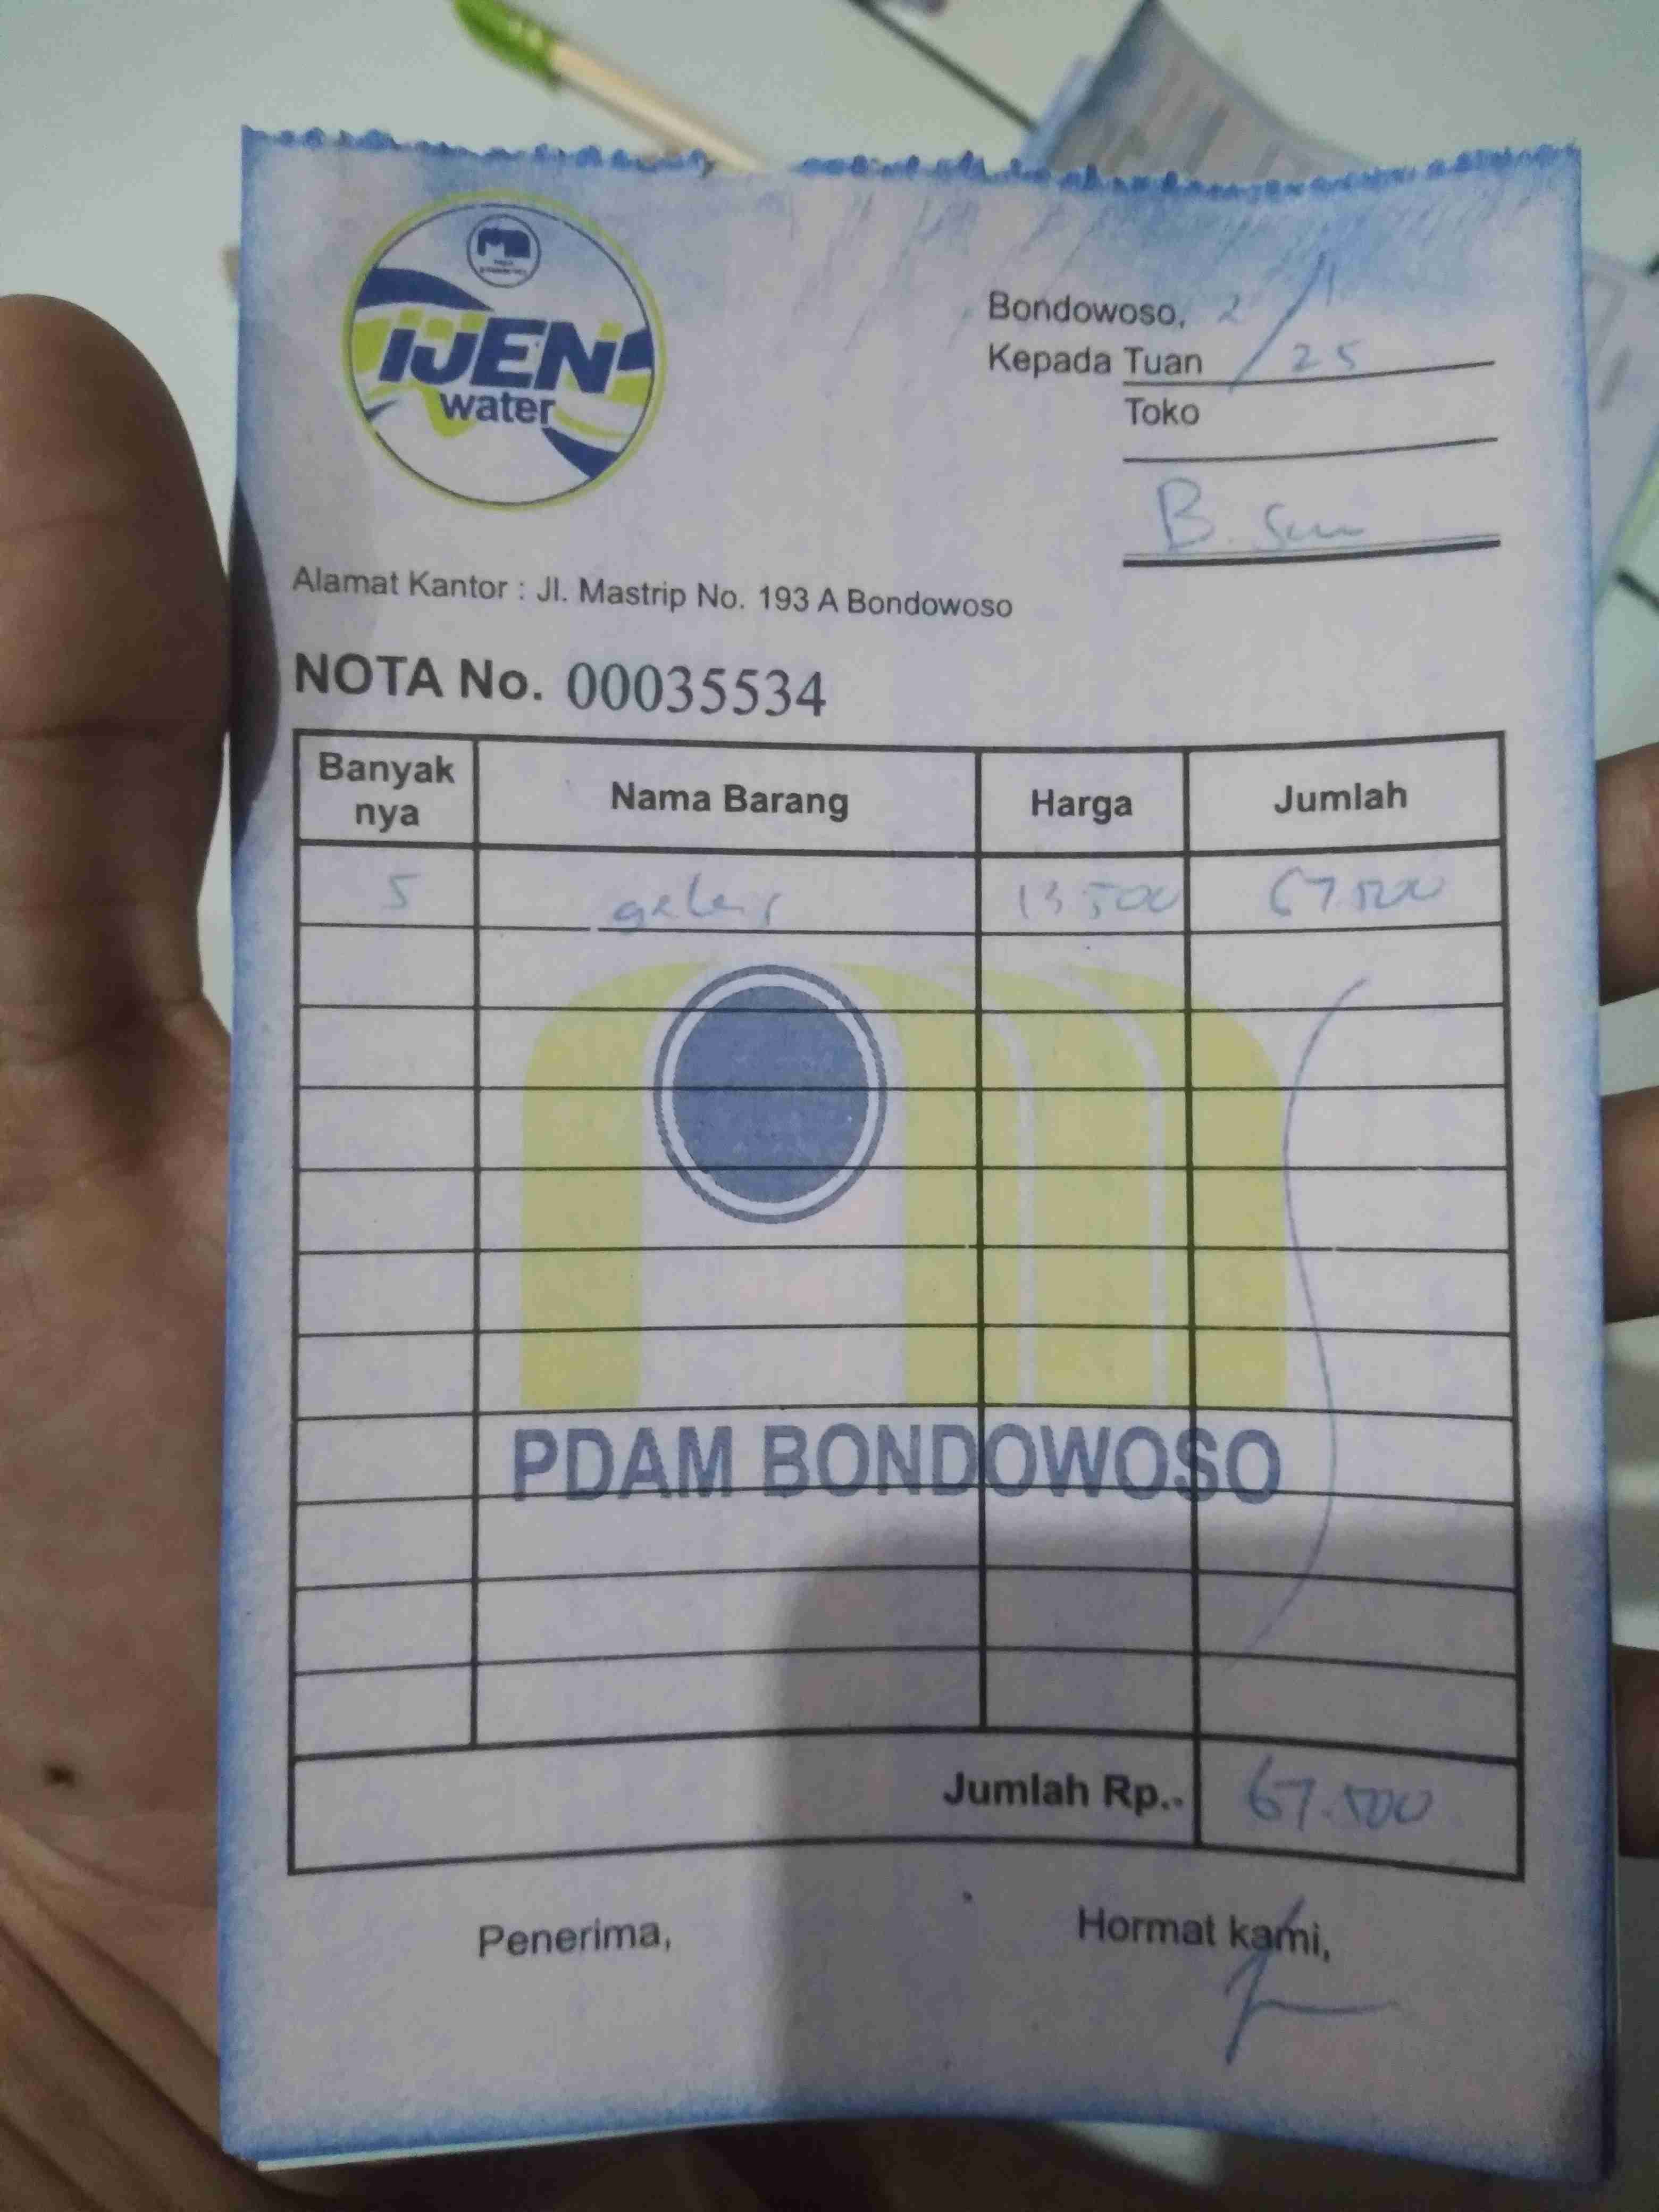 IJEN
water
Bondowoso, 2/1
Kepada Tuan 25
Toko
B.
Alamat Kantor : Jl. Mastrip No. 193 A Bondowoso
NOTA No. 00035534
Banyak nya Nama Barang Harga Jumlah
5 gelas 13.500 67.500
PDAM BONDOWOSO
Jumlah Rp.. 67.500
Penerima, Hormat kami,